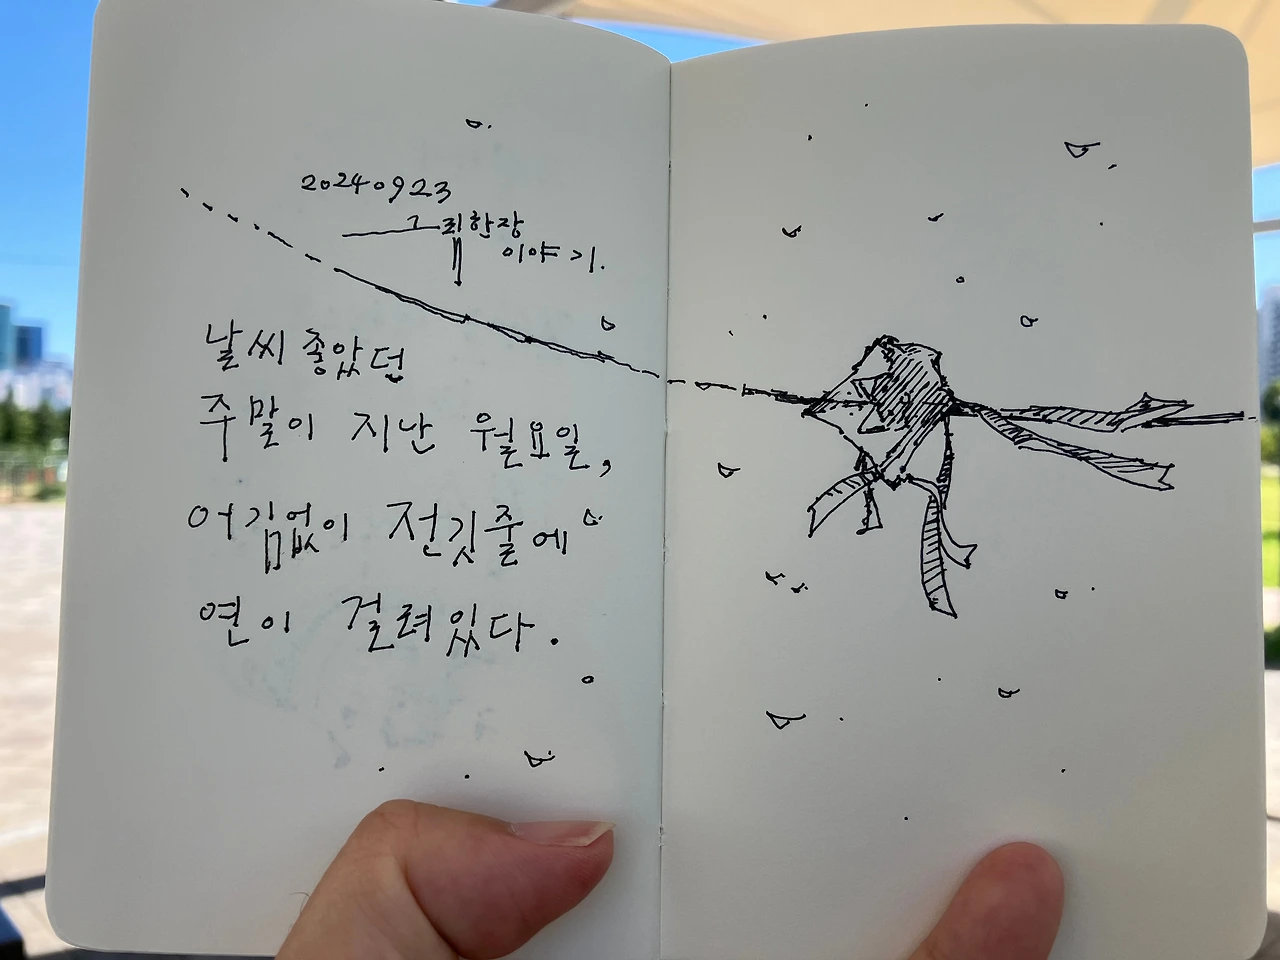 20240923
그림한장
이야기.
날씨 좋았던
주말이 지난 월요일,
어김없이 전깃줄에
연이 걸려있다.